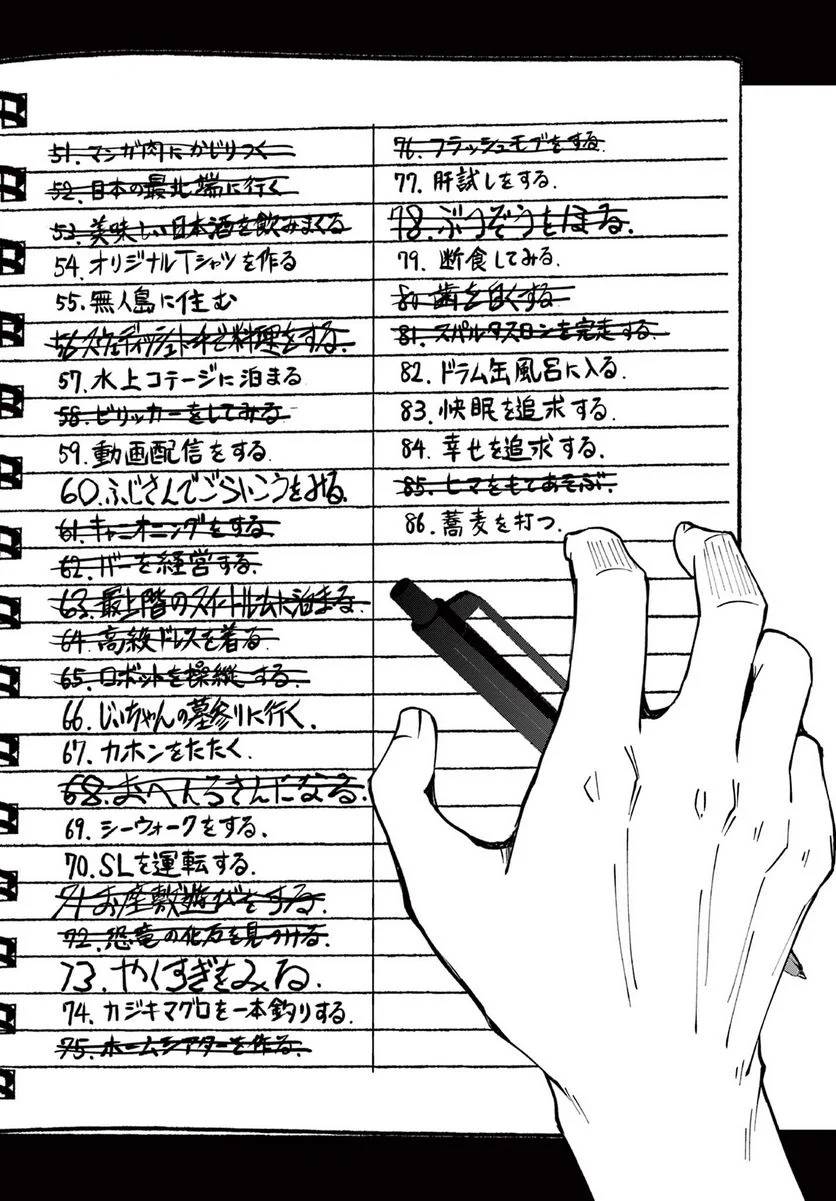 51. マンガ肉にかじりつく
52. 日本の最北端に行く
53. 美味しい日本酒を飲みまくる
54. オリジナルTシャツを作る
55. 無人島に住む
56. スウェディッシュトーチで料理をする.
57. 水上コテージに泊まる
58. ビリッカーをしてみる
59. 動画配信をする.
60. ふじさんでごらいこうをみる.
61. キャニオニングをする.
62. バーを経営する.
63. 最上階のスイートルームに泊まる.
64. 高級ドレスを着る.
65. ロボットを操縦する.
66. じいちゃんの墓参りに行く.
67. カホンをたたく.
68. おへんろさんになる.
69. シーウォークをする.
70. SLを運転する.
71. お座敷遊びをする.
72. 恐竜の化石を見つける.
73. やくすぎをみる.
74. カジキマグロを一本釣りする.
75. ホームシアターを作る.
76. フラッシュモブをする.
77. 肝試しをする.
78. ぶつぞうをほる.
79. 断食してみる.
80. 歯を白くする
81. スパルタスロンを完走する.
82. ドラム缶風呂に入る.
83. 快眠を追求する.
84. 幸せを追求する.
85. ヒマをもてあそぶ.
86. 蕎麦を打つ.